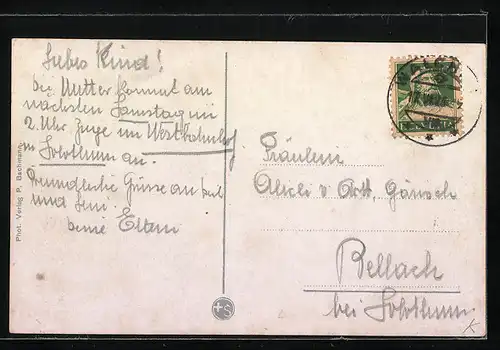 Liebes Kind!
die Mutter kommt am
nächsten Samstag im
2. Uhr Zuge im Westbahnhof
in Solothurn an.
Freundliche Grüsse an
und
deine Eltern
Phot. Verlag P. Bachmann,
Fräulein
v. Arx,
Bellach
bei Solothurn.
+S
K